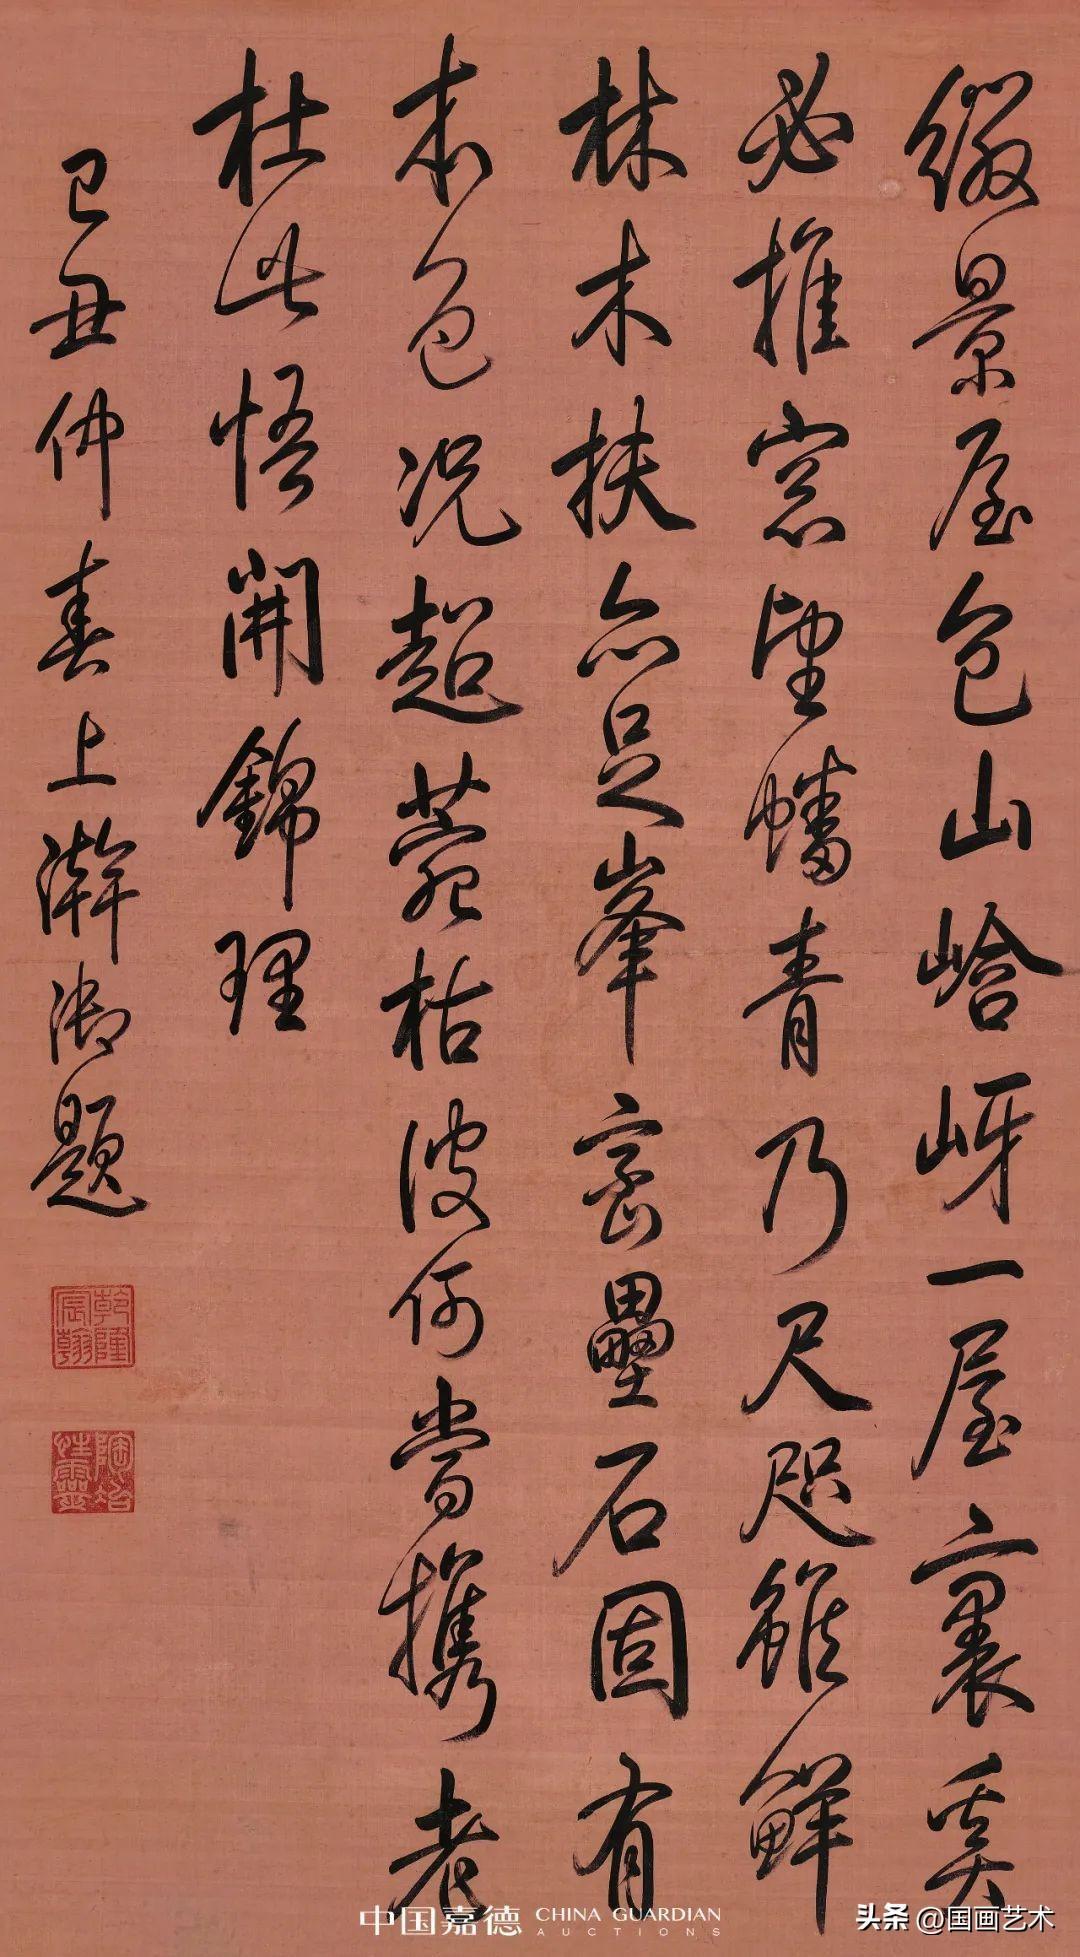 綴景屋包山峆岈一屋裏奚
必推窓望蟠青乃尺咫雖鮮
林木扶亦足峯巒壘石固有
本色况超菀枯彼何當攜老
杜此悟開錦理
己丑仲春上澣御題
乾隆宸翰
陶冶性靈
中国嘉德 CHINA GUARDIAN AUCTIONS
头条 @国画艺术